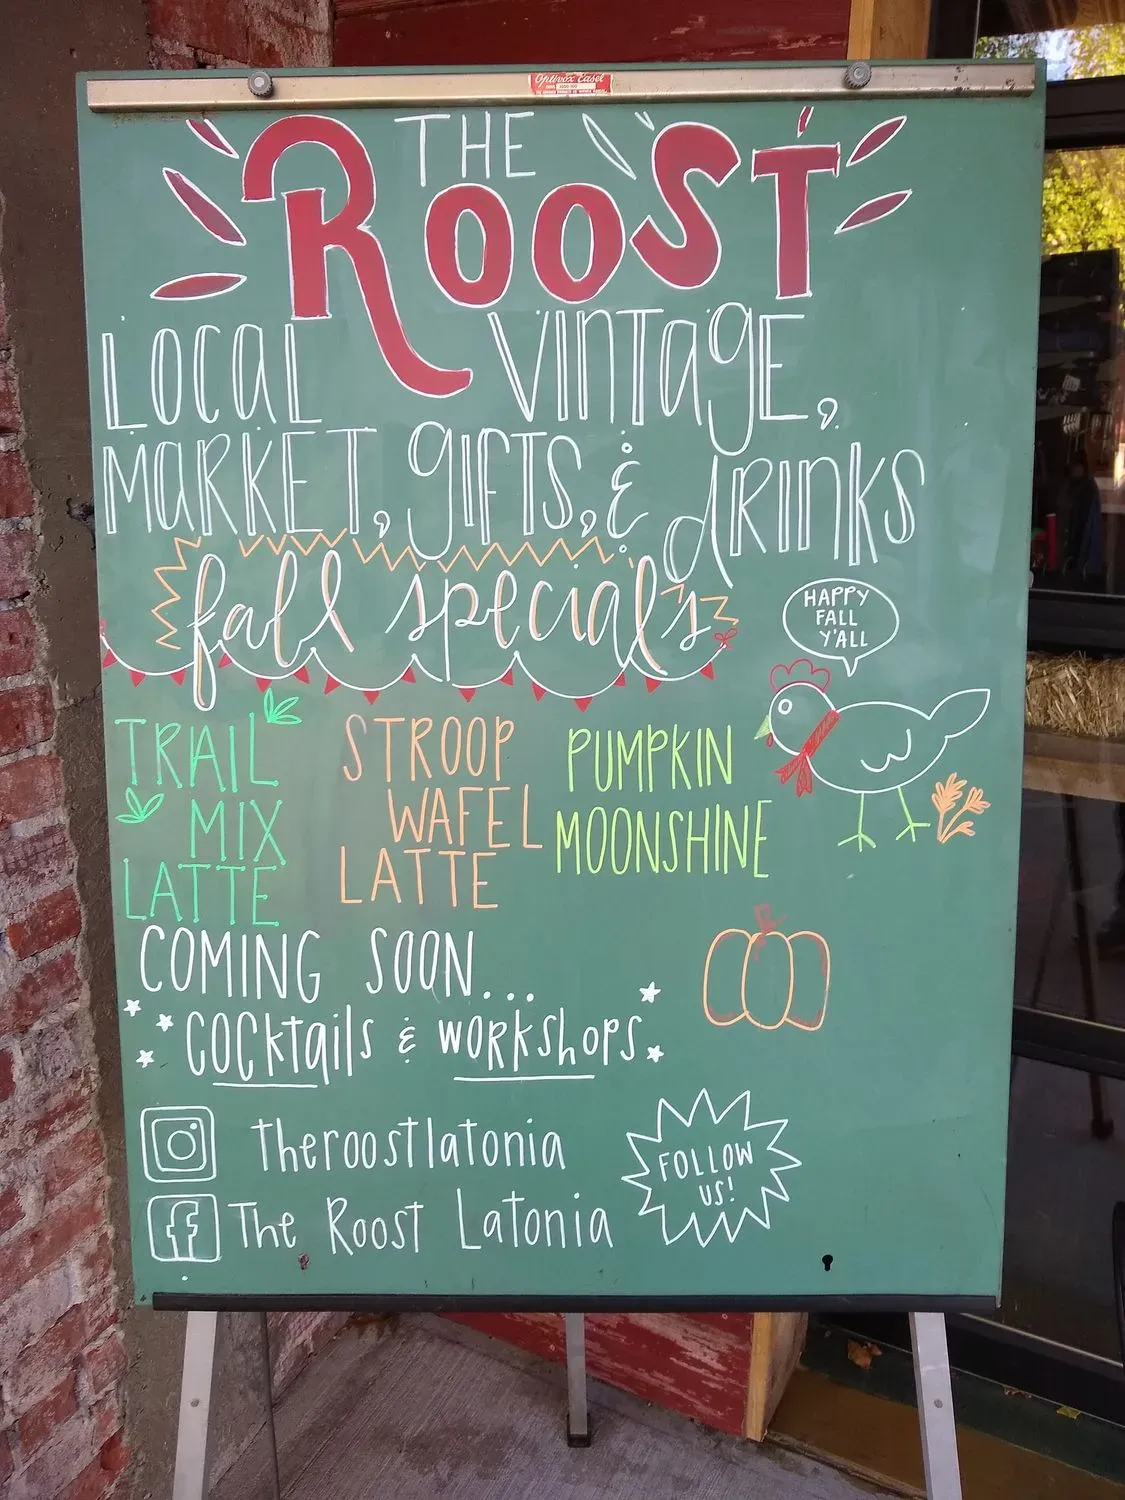 Optivox Easel
THE
ROOST
LOCAL VINTAGE,
MARKET, GIFTS, & DRINKS
fall specials
HAPPY
FALL
Y'ALL
TRAIL
MIX
LATTE
STROOP
WAFEL
LATTE
PUMPKIN
MOONSHINE
COMING SOON...
COCKtails & workshops
theroostlatonia
The Roost Latonia
FOLLOW
US!